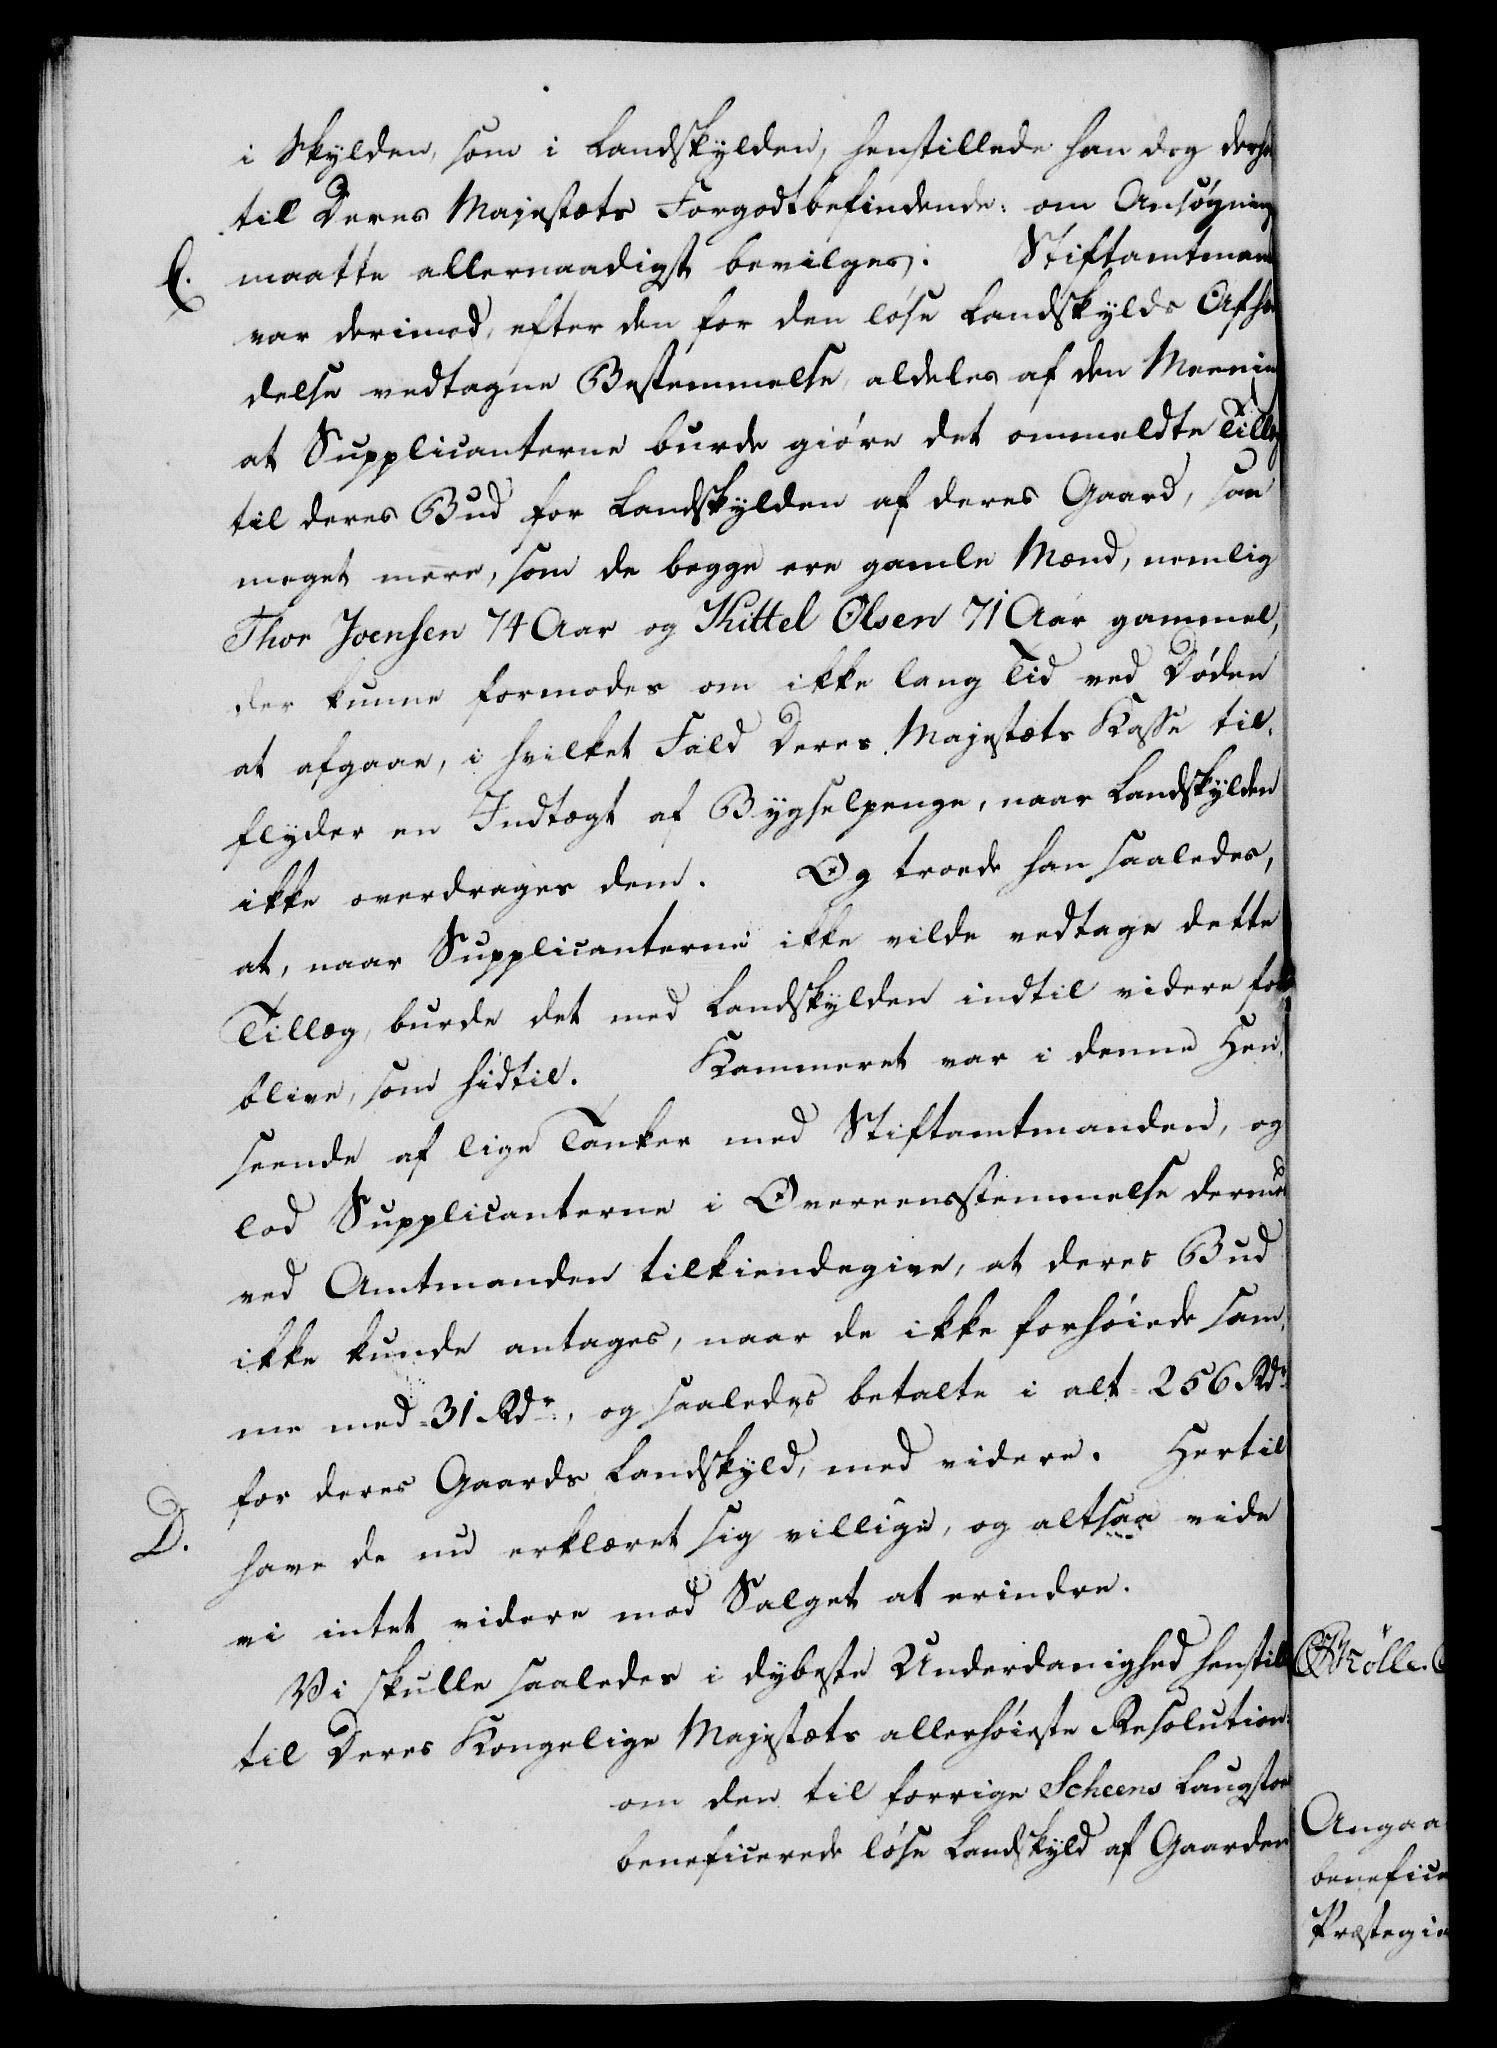 i Skylden, som i Landskylden, henstillede han dog
til Deres Majestæts Forgodtbefindende: om Ansøgning
C. maatte allernaadigst bevilges. Stiftamtmand
var derimod, efter den for den løse Landskylds Afhæn
delse vedtagne Bestemmelse, aldeles af den Meening
at Supplicanterne burde giøre det ommeldte Tillæg
til deres Bud for Landskylden af deres Gaard, saa
meget mere, som de begge ere gamle Mænd, nemlig
Thor Joensen 74 Aar og Kittel Olsen 71 Aar gammel,
der kunne formodes om ikke lang Tid ved Døden
at afgaae, i hvilket Fald Deres Majestæts Kasse til-
flyder en Indtægt af Bygselpenge, naar Landskylden
ikke overdrages dem. Og troede han saaledes,
at, naar Supplicanterne ikke vilde vedtage dette
Tillæg, burde det med Landskylden indtil videre for
blive, som hidtil. Kammeret var i denne Hen-
seende af lige Tanker med Stiftamtmanden, og
lod Supplicanterne i Overeensstemmelse dermed
ved Amtmanden tilkiendegive, at deres Bud
ikke kunde antages, naar de ikke forhøiede sam-
me med 31 Rdr., og saaledes betalte i alt 256 Rdr.
for deres Gaards Landskyld, med videre. Hertil
D. have de nu erklæret sig villige, og altsaa vide
vi intet videre mod Salget at erindre.
Vi skulle saaledes i dybeste Underdanighed henstille
til Deres Kongelige Majestæts allerhøieste Resolution:
om den til forrige Scheens Laugstoel
beneficerede løse Landskyld af Gaarden
Angaa
benefice
Præstegie